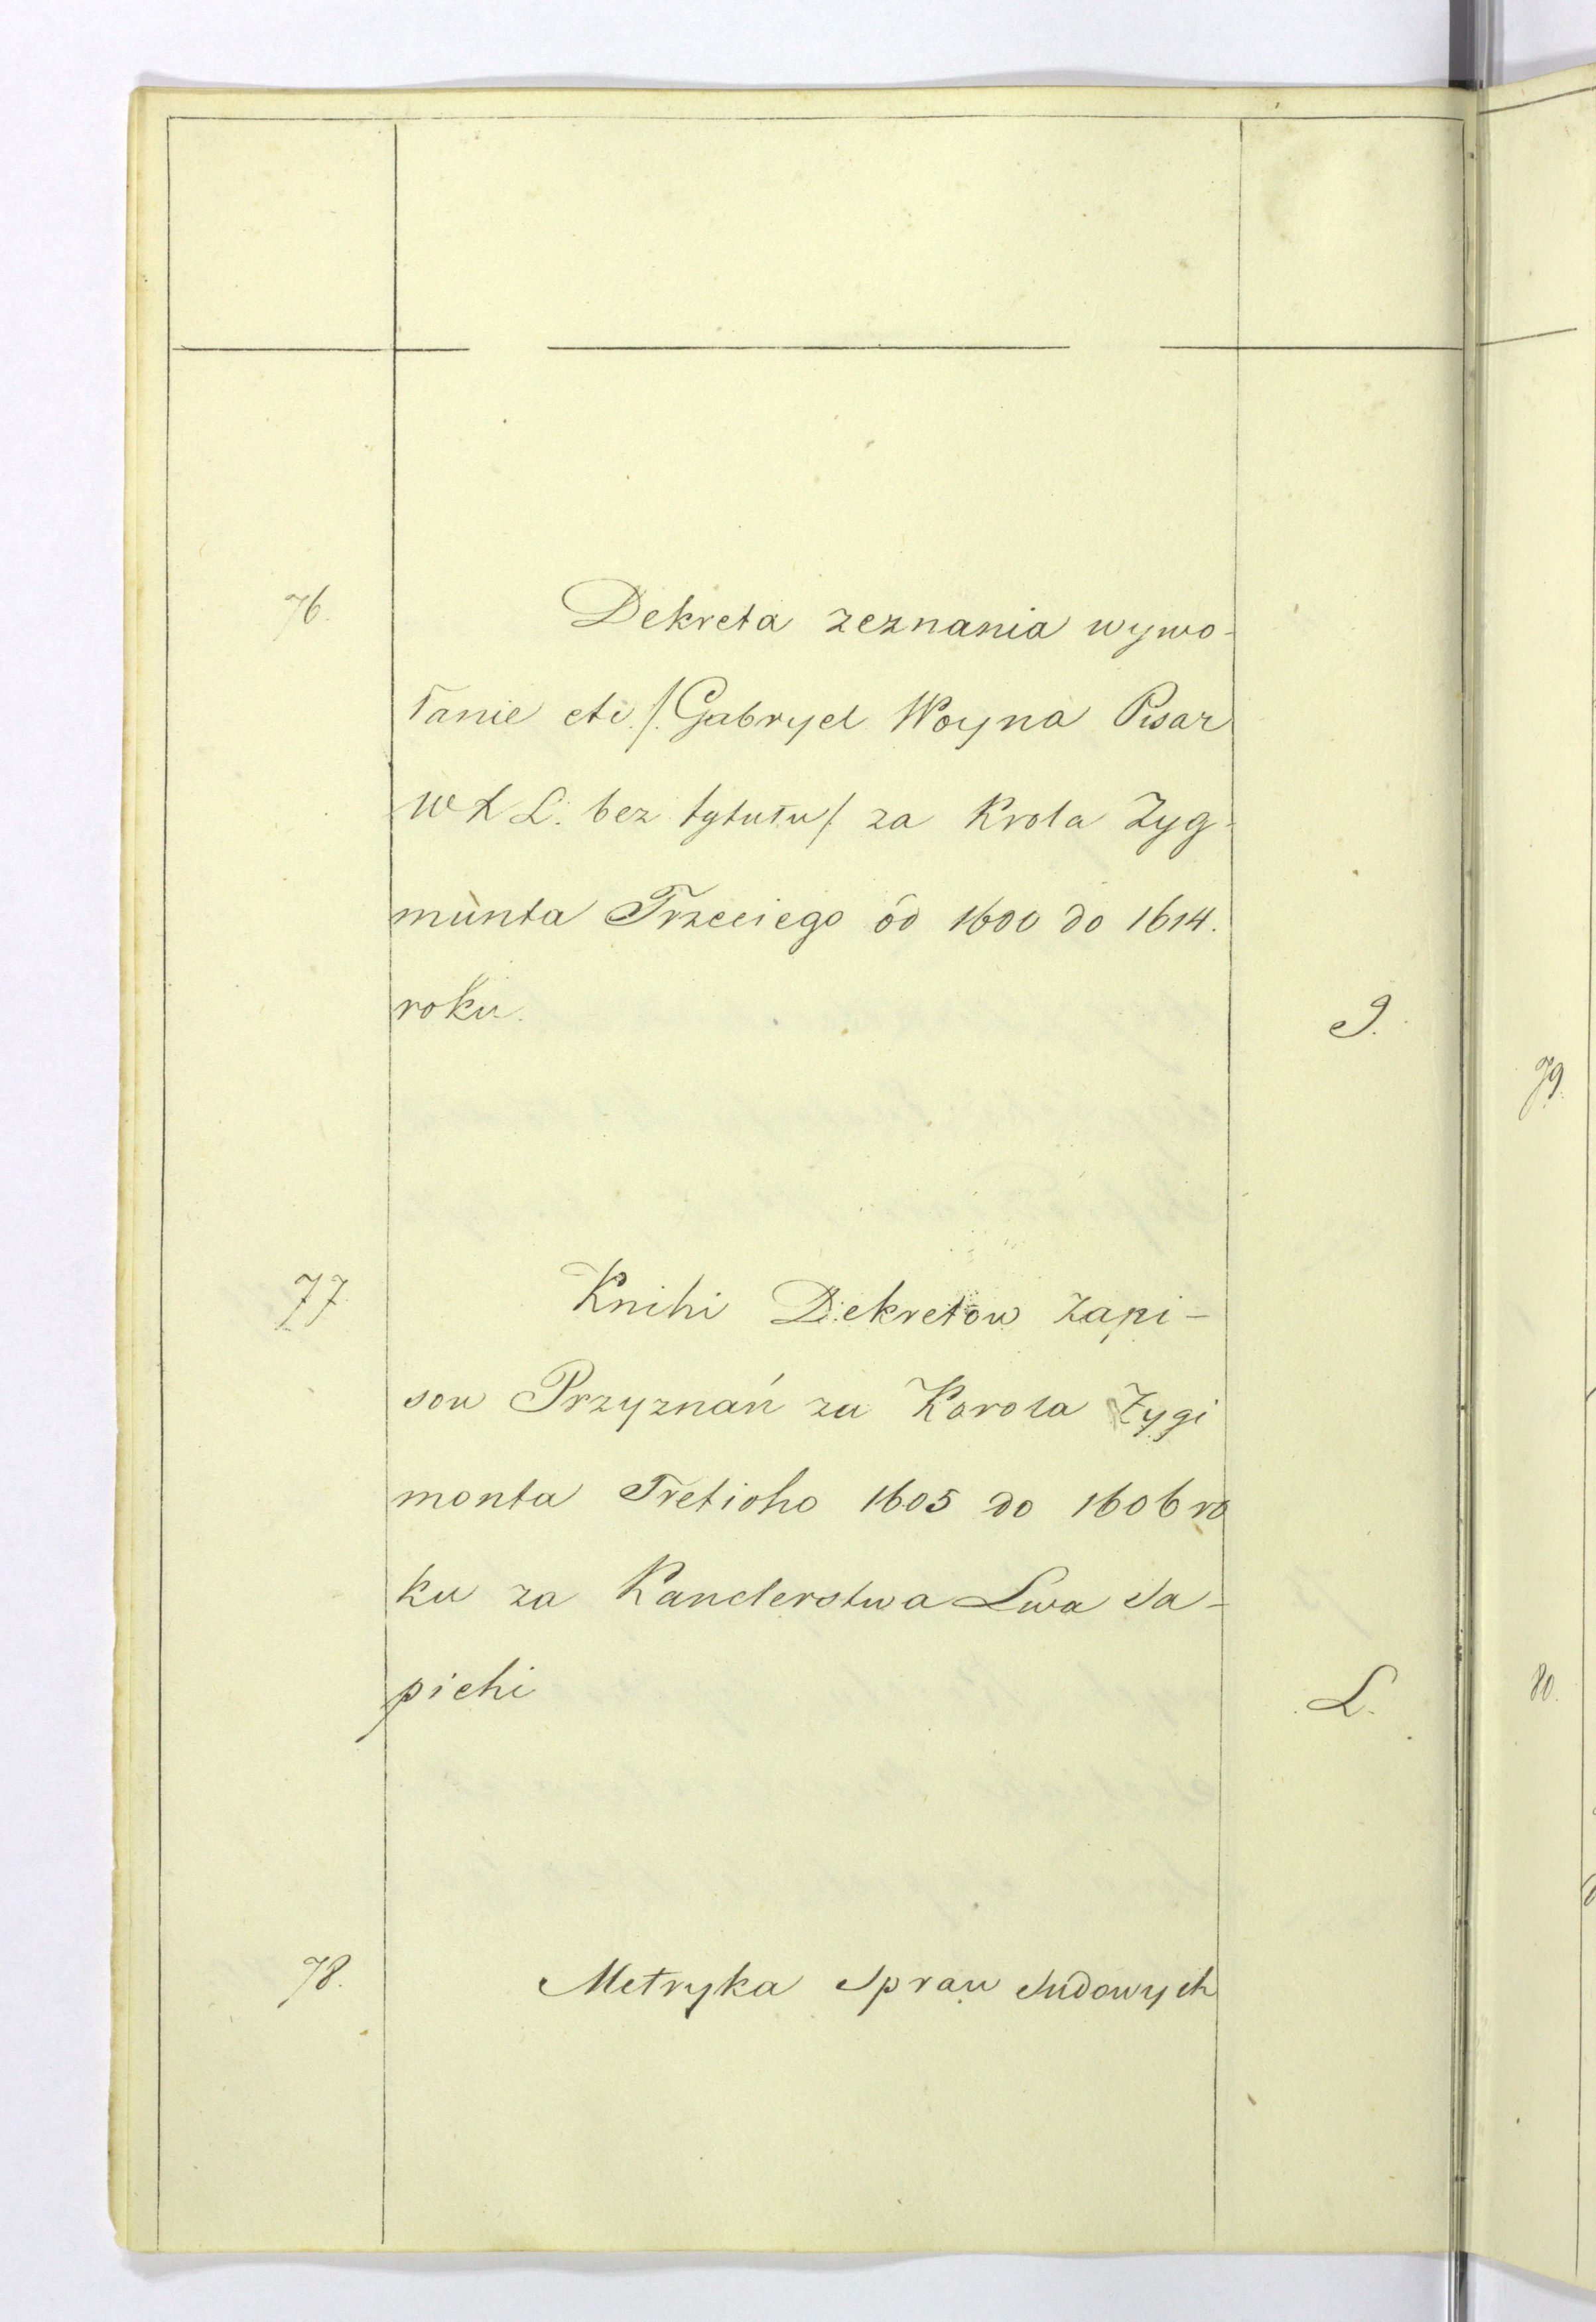 76. Dekreta zeznania wywo-
łanie etc /: Gabryel Woyna Pisar
W X L. bez tytułu / za Krola Zyg-
munta Trzeciego od 1600 do 1614.
roku. J.
77 Knihi Dekretow Zapi-
sow Przyznań za Korola Zygi
monta Tretioho 1605 do 1606 ro
ku za Kanclerstwa Lwa Sa-
piehi L.
78. Metryka Spraw Sudowych
79.
80.